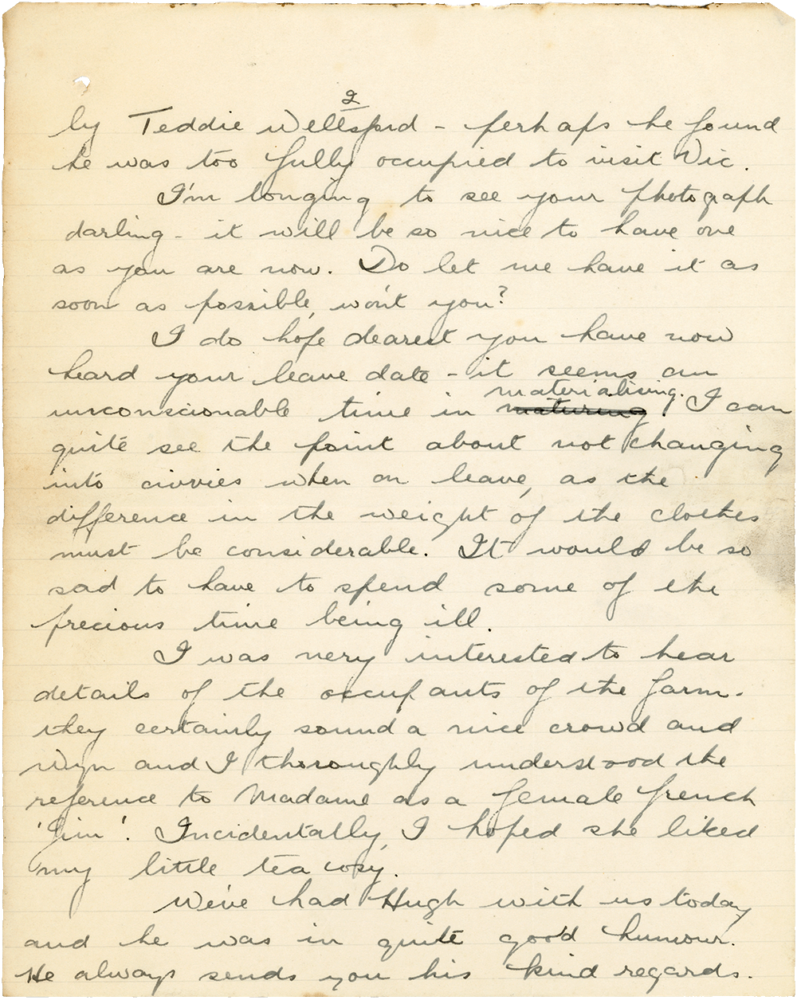 2
by Teddie Wellsford - perhaps he found
he was too fully occupied to visit Vic.
I'm longing to see your photograph
darling - it will be so nice to have one
as you are now. Do let me have it as
soon as possible, won't you?
I do hope dearest you have now
heard your leave date - it seems an
materialising.
unconscionable time in maturing! I can
quite see the point about not changing
into civvies when on leave, as the
difference in the weight of the clothes
must be considerable. It would be so
sad to have to spend some of the
precious time being ill.
I was very interested to hear
details of the occupants of the farm.
they certainly sound a nice crowd and
Wyn and I thoroughly understood the
reference to Madame as a female french
'Jim'. Incidentally, I hoped she liked
my little tea cosy.
We've had Hugh with us today
and he was in quite good humour.
He always sends you his kind regards.